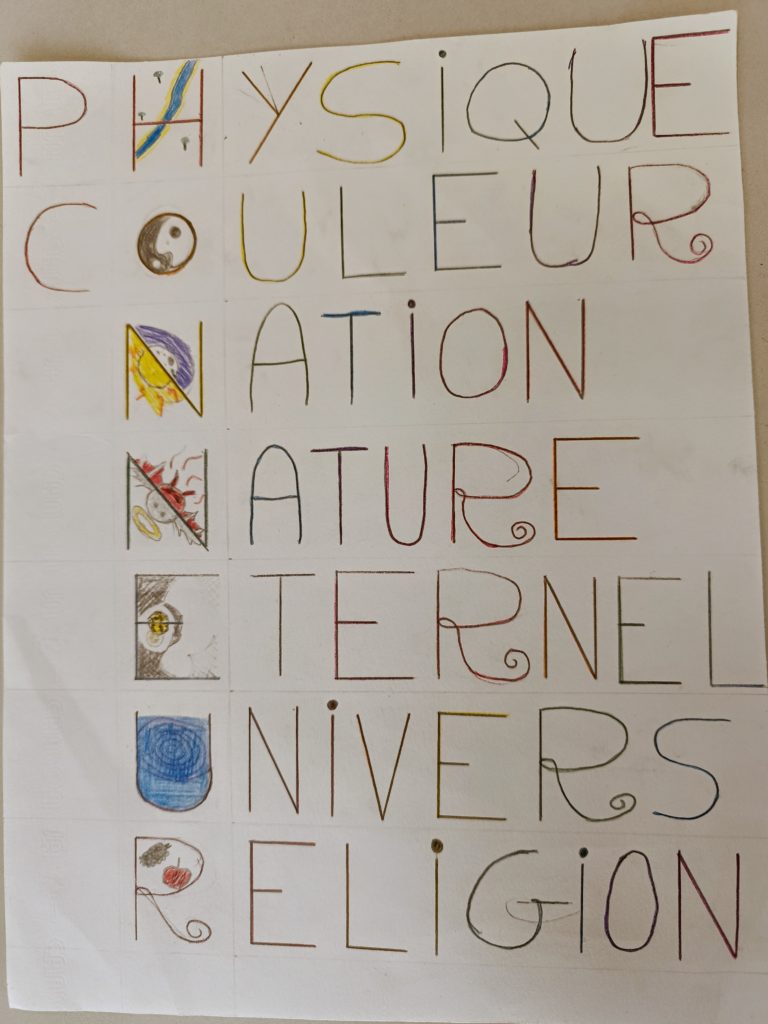 PHYSiQUE
COULEUR
NATiON
NATURE
ETERNEL
UNiVERS
RELiGiON